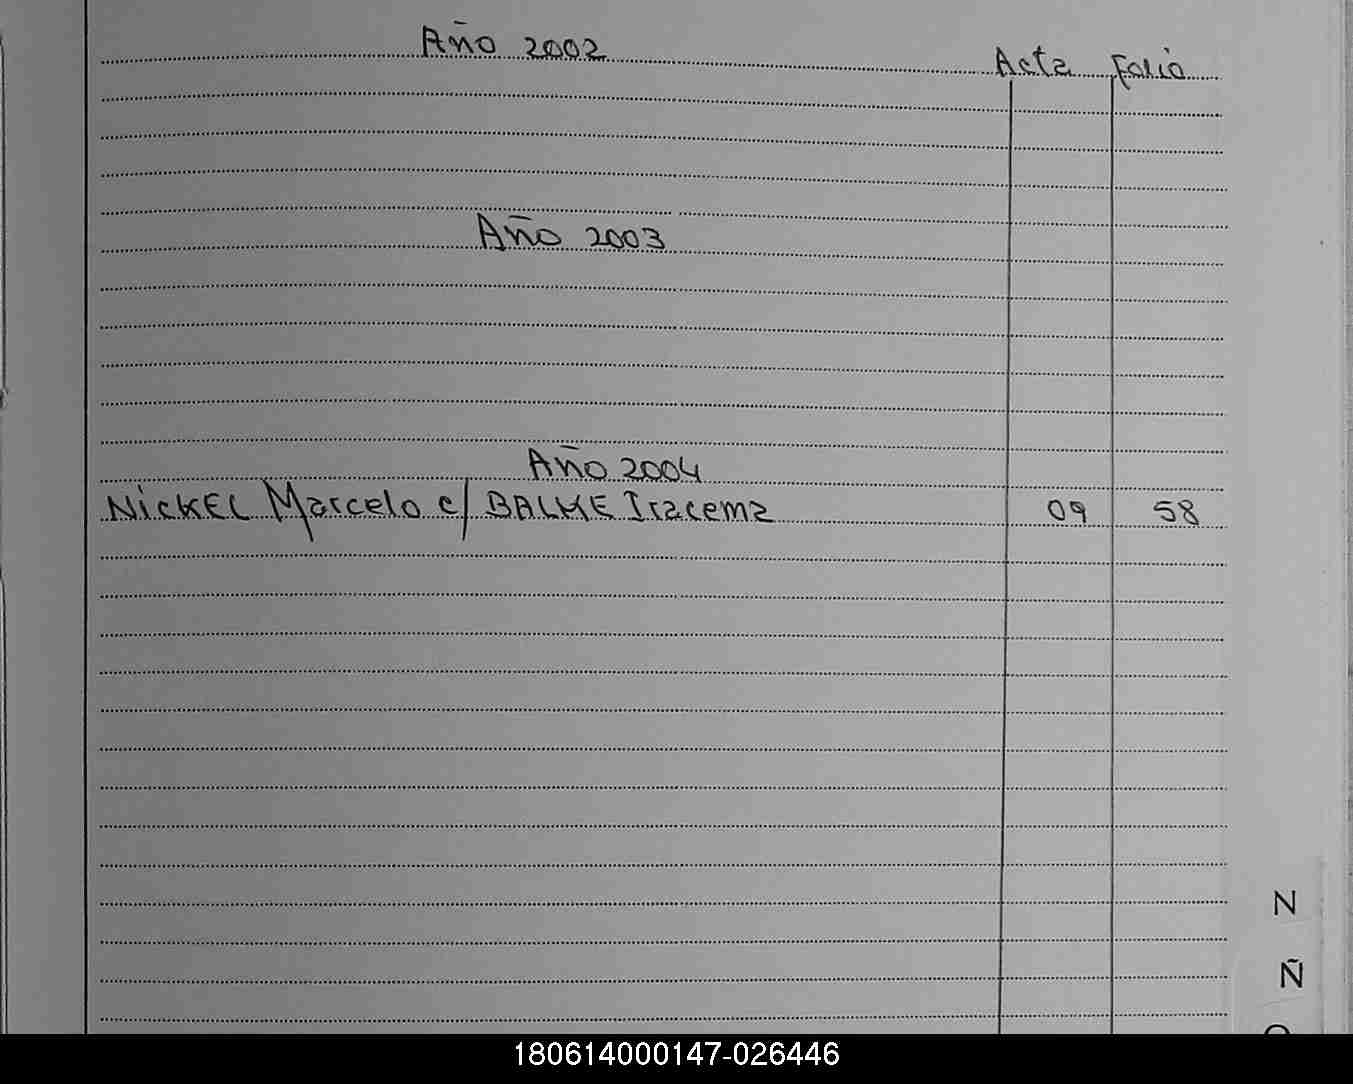 Año 2002
Acta Folio
Año 2003
Año 2004
NicKEL Marcelo c/ BALKE Iracema 09 58
N
Ñ
180614000147-026446